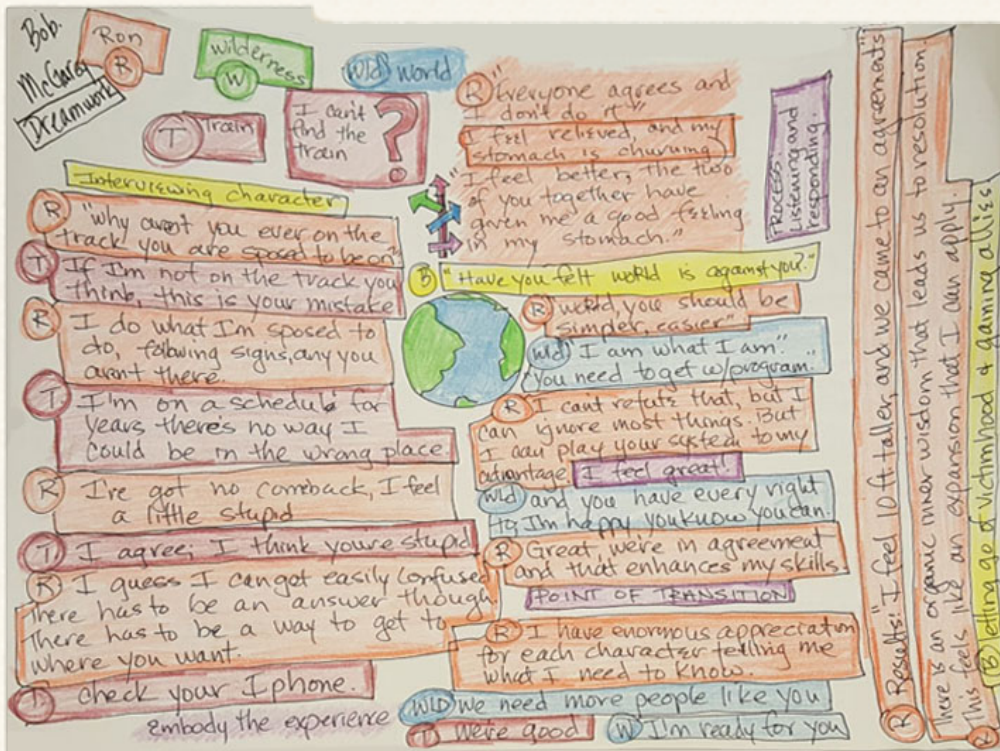 Bob.
McGarey
Dreamwork
Ron
R
Wilderness
W
Wld world
T Train
I can't
find the
train
?
Interviewing character
R "why arent you ever on the
track you are sposed to be on"
T If I'm not on the track you
think, this is your mistake
R I do what I'm sposed to
do, following signs, any you
arent there.
T I'm on a schedule for
years there's no way I
could be in the wrong place.
R I've got no comeback, I feel
a little stupid
T I agree, I think youre stupid
R I guess I can get easily confused
There has to be an answer though
There has to be a way to get to
where you want.
T check your Iphone.
embody the experience
R "Everyone agrees and
I don't do it"
I feel relieved, and my
stomach is churning
"I feel better, the two
of you together have
given me a good feeling
in my stomach."
PROCESS
Listening and
responding.
B "Have you felt world is against you?"
R world, you should be
simpler, easier"
Wld "I am what I am"
"you need to get w/program."
R I cant refute that, but I
can ignore most things. But
I can play your system to my
advantage. I feel great!
Wld and you have every right
to, I'm happy you know you can.
R Great, we're in agreement
and that enhances my skills.
POINT OF TRANSITION
R I have enormous appreciation
for each character telling me
what I need to know.
WLD we need more people like you
T we're good
W I'm ready for you
R Results: "I feel 10 ft taller, and we came to an agreements"
There is an organic inner wisdom that leads us to resolution
R This feels like an expansion that I can apply.
B letting go of victimhood & gaining allies